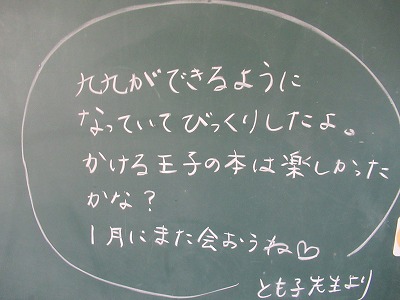 九九ができるように
なっていてびっくりしたよ。
かける王子の本は楽しかった
かな?
1月にまた会おうね♡
とも子先生より